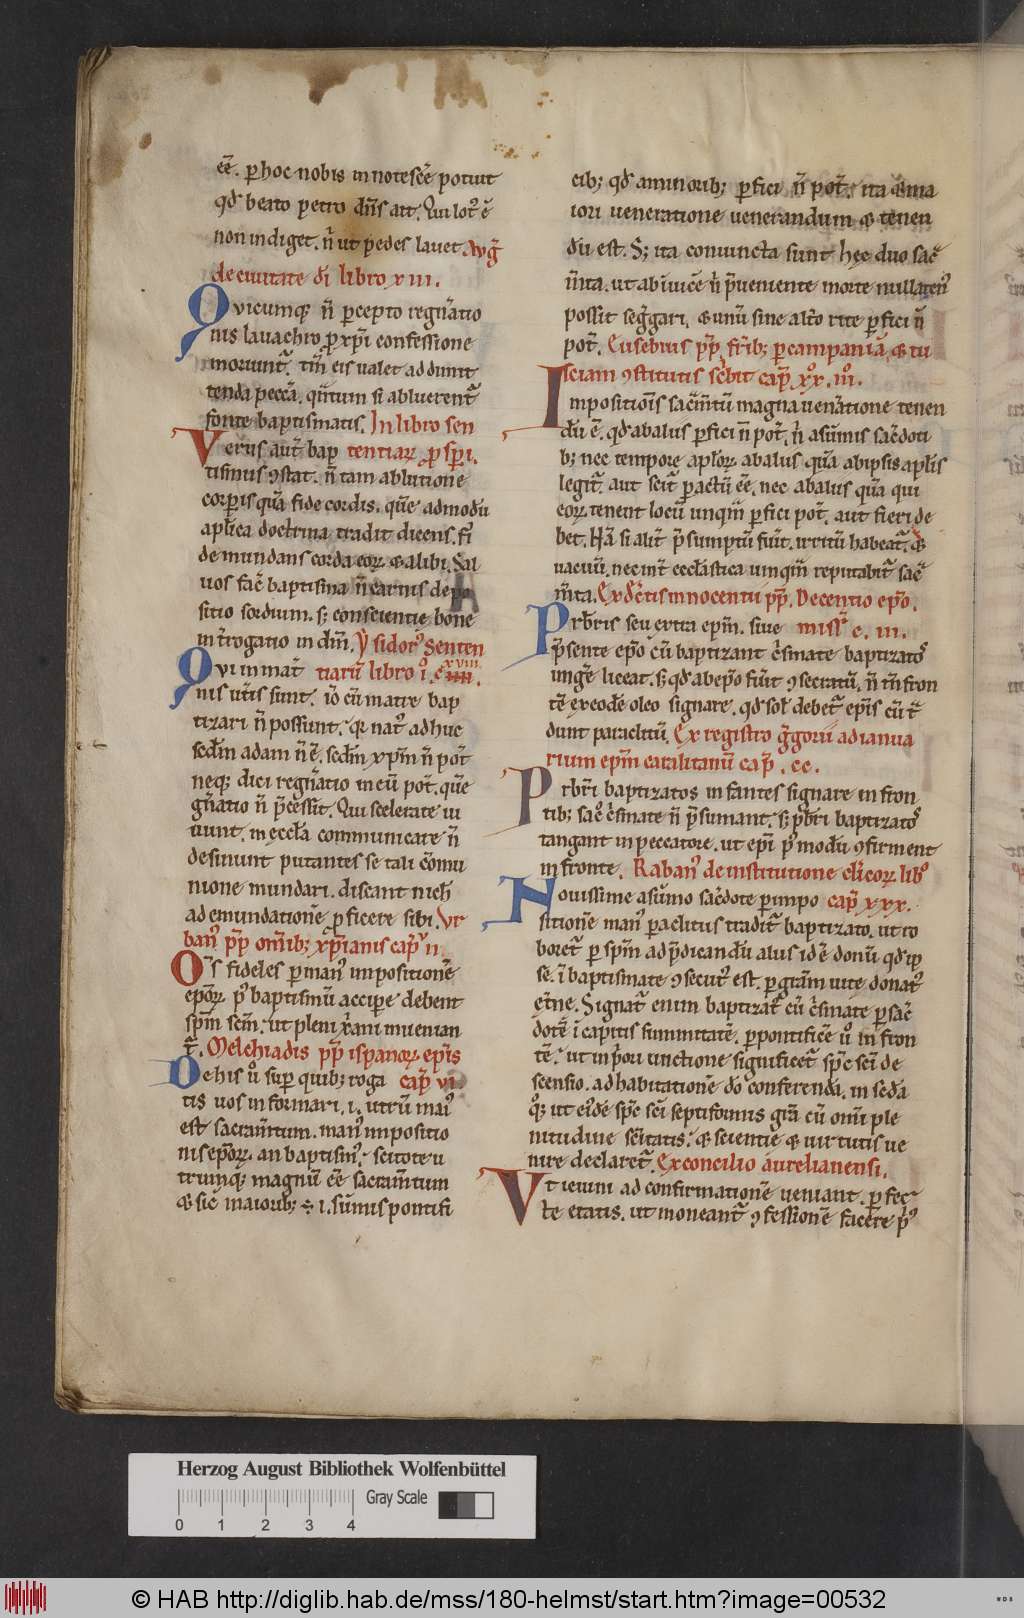 eē. ꝑ hoc nobis innotescē potuit
qd̄ beato petro dn̄s ait. Qui lotꝰ ē
non indiget. n̄ ut pedes lauet. Aug̃
de ciuitate dī libro xiii.
Quicumqꝫ n̄ ꝑcepto regn̄atio
nis lauachro ꝓ xp̄i confessione
moriunt᷑. tm̄ eis ualet ad dimit
tenda pecc̄a. qn̄tum si abluerent᷑
fonte baptismatis. In libro sen
Verus aut̄ bap tentiaꝝ ꝓsperi.
tismus ꝯstat. n̄ tam ablutione
corꝑis quā fide cordis. quē admodū
apl̄ica doctrina tradit dicens. fi
de mundans corda eoꝝ. & alibi. Sal
uos fac̄ baptisma n̄ carnis depo
sitio sordium. sꝫ conscientie bone
int̄rogatio in dm̄. Ysidorꝰ senten
Qui in mat᷑ tiarū libro i. c̄ xviii.
nis ut̄is sunt. iō cū matre bap
tizari n̄ possunt. q̄ natꝰ adhuc
sedm̄ adam n̄ ē. sedm̄ xp̄m n̄ pot̄
neqꝫ dici regn̄atio in eū pot̄. quē
gn̄atio n̄ p̄cessit. Qui scelerate ui
uunt. in ęccl̄a communicare n̄
desinunt putantes se tali cōmu
nione mundari. discant nich̄
ad emundationē ꝓficere sibi. Ur
banꝰ pp̄ om̄ibꝫ xp̄ianis cap̄ ii.
Om̄s fideles ꝑ manꝰ impositionē
ep̄oꝝ pꝰ baptismū accipe debent
sp̄m scm̄. ut pleni xp̄iani inuenian
t᷑. Melchiadis pp̄ ispanoꝝ ep̄is
De his ū sup̄ quibꝫ roga cap̄ vi.
tis uos informari. i. utrū maiꝰ
est sacram̄tum. manꝰ impositio
nis ep̄oꝝ. an baptismꝰ. scitote u
trumqꝫ magnū eē sacram̄tum
& sic̄ maioribꝫ ÷ i. sūmis pontifi
cibꝫ qd̄ a minoribꝫ ꝑfici n̄ pot̄. ita & ma
iori ueneratione uenerandum & tenen
dū est. Sꝫ ita coniuncta sunt hęc duo sac̄
m̄ta. ut ab iuicē n̄ p̄ueniente morte nullatenꝰ
possit seg̃gari. & unū sine alt̄o rite ꝑfici n̄
pot̄. Eusebius pp̄ fr̄ibꝫ ꝑ campaniā & tu
sciam ꝯstitutis sc̄bit cap̄
Impositiōis sac̄m̄tū magna uen̄atione tenen
dū ē. qd̄ ab alus ꝑfici n̄ pot̄. n̄ a sūmis sac̄doti
bꝫ nec tempore apl̄oꝝ ab alus quā ab ipsis apl̄is
legit᷑. aut scit᷑ ꝑactū eē. nec ab alus quā qui
eoꝝ tenent locū unqm̄ ꝑfici pot̄. aut fieri de
bet. Nā si alit̄ p̄sumptū fuīt. irritū habeat᷑. &
uacuū. nec int̄ eccl̄astica umqm̄ reputabit᷑ sac̄
m̄ta. Ex dc̄tis innocentii pp̄. Decentio ep̄o.
Prb̄ris seu extra ep̄m. siue miss᷑ c. iii.
p̄sente ep̄o cū baptizant c̄smate baptizatoꝰ
ungē liceat. sꝫ qd̄ ab ep̄o fuīt ꝯsecratū. n̄ tm̄ fron
tē ex eodē oleo signare. qd̄ sol̄ debet᷑ ep̄is cū t᷑
dunt paraclitū. Ex registro g̃gorii ad ianua
rium ep̄m caralitanū cap̄ . cc.
Prb̄ri baptizatos infantes signare in fron
tibꝫ sac̄ c̄smate n̄ p̄sumant. sꝫ p̄bri baptizatoꝰ
tangant in peccatore. ut ep̄i pꝰ modū ꝯfirment
in fronte. Rabanꝰ de institutione cl̄icoꝝ libꝰ
Nouissime a sūmo sac̄dote ꝑ impo cap̄ xxx.
sitionē manꝰ paraclitus tradit᷑ baptizato. ut ro
boret᷑ ꝑ sp̄m ad p̄dicandū alus id ē donū qd̄ ip
se. ī baptismate ꝯsecutꝰ est. ꝑ gr̄am uite donatꝰ
et̄ne. Signat᷑ enim baptizatꝰ cū c̄smate ꝑ sac̄
dotē ī capitis summitatē. ꝑ pontificē ū in fron
tē. ut in p̄ori unctione significet᷑ sp̄c sc̄i de
scensio. ad habitationē do conferenda. in seda
qꝫ ut ei'dē sp̄c sc̄i septiformis gr̄a cū om̄i ple
nitudine sc̄itatis. & scientie & uirtutis ue
nire declaret᷑. Ex concilio aurelianensi.
Vt ieiuni ad confirmationē ueniant. ꝑfec
te etatis. ut moneant᷑ ꝯfessionē facere pꝰ
Herzog August Bibliothek Wolfenbüttel
Gray Scale
0 1 2 3 4
© HAB http://diglib.hab.de/mss/180-helmst/start.htm?image=00532